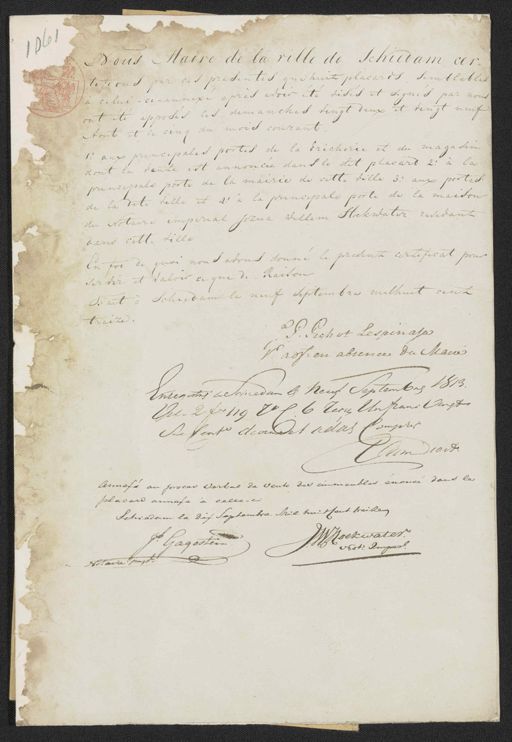 1061
Nous Maire de la ville de Schiedam cer-
tifions par ces présentes que huit placards semblables
à celui ci-annexé après avoir été visés et signés par nous
ont été apposés les dimanches vingt deux et vingt neuf
Août et le cinq du mois courant.
1o aux principales portes de la et du magasin
dont la vente est annoncée dans le dit placart 2o à la
principale porte de la mairie de cette ville 3o aux portes
de la dite ville et 4o à la principale porte de la maison
du Notaire impérial Willem residant
dans cette ville
En foi de quoi nous avons donné le présente certificat pour
servir et valoir ce que de Raison
Fait à Schiedam le neuf septembre mil huit cent
treize.
P. Pichot Lespinasse
en absence du Maire
Enregistré à Schiedam le Neuf Septembre 1813
Vol. 2 fo 119 Vo C 6 Reçu Un franc Vingt
Compris
Annexé au procès verbal de vente des immeubles énoncé dans la
placard annexé à
Schiedam le dix Septembre Mil huit cent treize
Gagestein
Notaire
JW
Not: Imperl